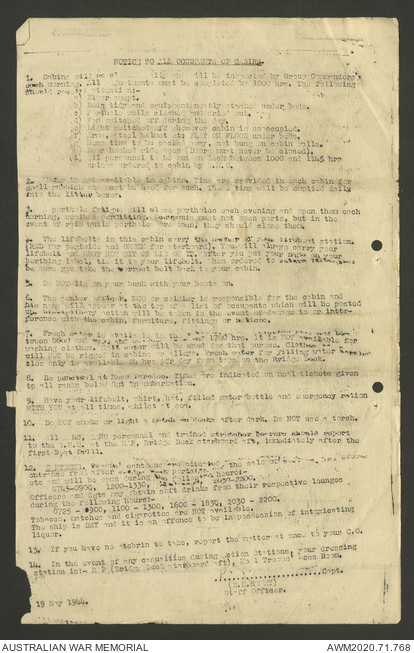 NOTICE TO ALL OCCUPANTS OF CABINS.
1. Cabins will be and will be inspected by Group Commanders
each morning. All adjustments must be completed by 1000 hrs. The following
should receive attention:-
(a) Floor swept.
(b) Beds tidy and equipment neatly stacked under beds.
(c) Porthole wells cleaned and dried out.
(d) Fan switched off during the day.
(e) Light switched off whenever cabin is unoccupied.
(f) steel helmets to be FLAT ON FLOOR under beds.
(g) items to be packed away, not hung on cabin walls.
(h) hooked wide open (Doors must never be closed).
(i) All personnel to be out on deck between 1000 and 1145 hrs
unless ordered to cabin by
2. is not available in cabins. Tins are provided in each cabin for
small rubbish and must be used for such. These tins will be emptied daily
into the litter boxes.
3. A porthole fatigue will close portholes each evening and open them each
morning, weather permitting. Occupants must not open ports, but in the
event of rain while portholes are open, they should close them.
4. The lifebelts in this cabin carry the number of your lifeboat station.
(RED for portside and GREEN for starboard). You will always carry your
lifebelt and MUST NOT SIT OR LIE ON IT. After you put your name on your
berthing label, tie it to your lifebelt. When ordered to
be sure you take the correct belt back to your cabin.
5. Do NOT lie on your bunk with your boots on.
6. The senior officer, NCO or soldier is responsible for the cabin and
his name will appear at the top of a list of occupants which will be posted
up. Disciplinary action will be taken in the event of damage to or inter-
ference with the cabin, furniture, fittings or notices.
7. Fresh water is available in
tween 0600 and and 1700 hrs. it is NOT available for
washing clothes. Salt water will be used for that purpose.
will NOT be rigged in cabins or alleys. Fresh water for filling water
tles only is available 24 hrs per day from taps on the Bridge Deck.
8. Be punctual at Mess Parades. Times are indicated on meal tickets given
to all ranks below Sgt on embarkation.
9. Have your lifebelt, shirt, hat, filled water bottle and emergency ration
WITH YOU at all times, whilst at sea.
10. Do NOT smoke or light a match on decks after dark. Do NOT use a torch.
11. All MO, AAMC personnel and trained stretcher bearers should report
to the at the RAP, Bridge Deck starboard aft, immediately after the
first Boat Drill.
12. CANTEENS. Troops' canteens the sale of
entrance to after
etc and will be open during the following hours:-
0745-0900, 1200-1330, 2030-2200.
Officers and Sgts may obtain soft drinks from their respective lounges
during the following hours:-
0725 - 0900, 1100 - 1300, 1600 - 1830, 2030 - 2200.
Tobacco, matches and cigarettes are NOT available.
The ship is DRY and it is an offence to be in possession of intoxicating
liquor.
13. If you have no atebrin to take, report the matter at once to your C.O.
14. In the event of any casualties during Action Stations, your dressing
station is:- RAP (Bridge Deck starboard aft), No 1 Troops Mess Room.
Capt.
Staff Officer.
19 May 1944.
AUSTRALIAN WAR MEMORIAL
AWM2020.71.768